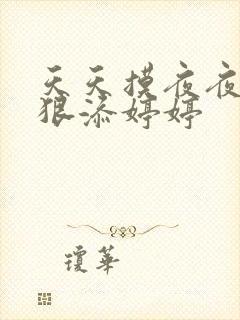 天天摸夜夜
狠添婷婷
瓊華